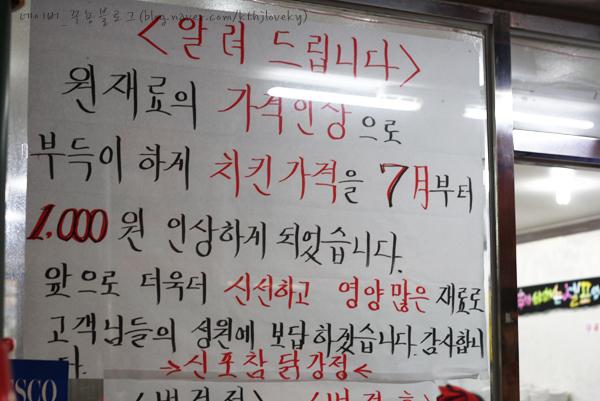 네이버_꾸농블로그(blog.naver.com/kthjloveky)
<알려 드립니다>
원재료의 가격인상으로
부득이 하게 치킨가격을 7月부터
1,000원 인상하게 되었습니다.
앞으로 더욱더 신선하고 영양많은 재료로
고객님들의 성원에 보답하겠습니다. 감사합니
다.
→신포참닭강정←
SCO